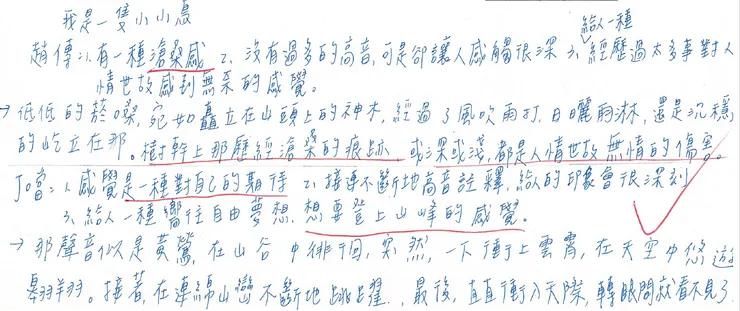 我是一隻小小鳥
趙傳:1.有一種滄桑感 2、沒有過多的高音,可是卻讓人感觸很深 3、給人一種經歷過太多事對人
情世故感到無奈的感覺。
→低低的菸嗓,宛如矗立在山頭上的神木,經過了風吹雨打、日曬雨淋,還是沉穩
的屹立在那。樹幹上那歷經滄桑的痕跡,或深或淺,都是人情世故無情的傷害。
J.噹:1.感覺是一種對自己的期待 2、接連不斷地高音詮釋,給人的印象會很深刻
3、給人一種嚮往自由夢想,想要登上山峰的感覺。
→那聲音似是黃鶯,在山谷中徘徊,突然,一下衝上雲霄,在天空中悠遊
翱翔。接著,在連綿山巒不斷地跳躍,最後,直直衝入天際,轉眼間就看不見了